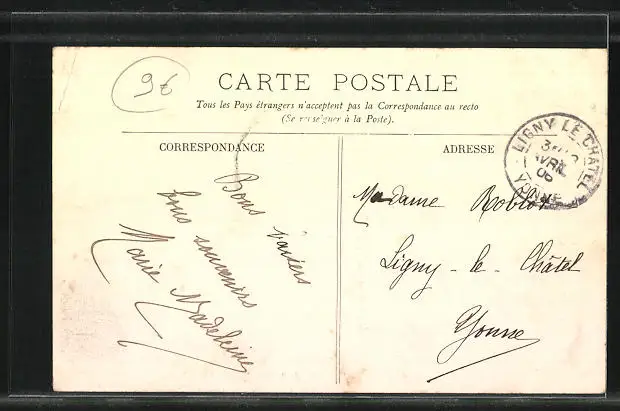 9€
CARTE POSTALE
Tous les Pays étrangers n'acceptent pas la Correspondance au recto
(Se renseigner à la Poste).
CORRESPONDANCE
Bons baisers
bons souvenirs
Marie Madeleine
ADRESSE
LIGNY LE CHATEL
AVRIL
06
YONNE
Madame Roblot
Ligny-le-Châtel
Yonne